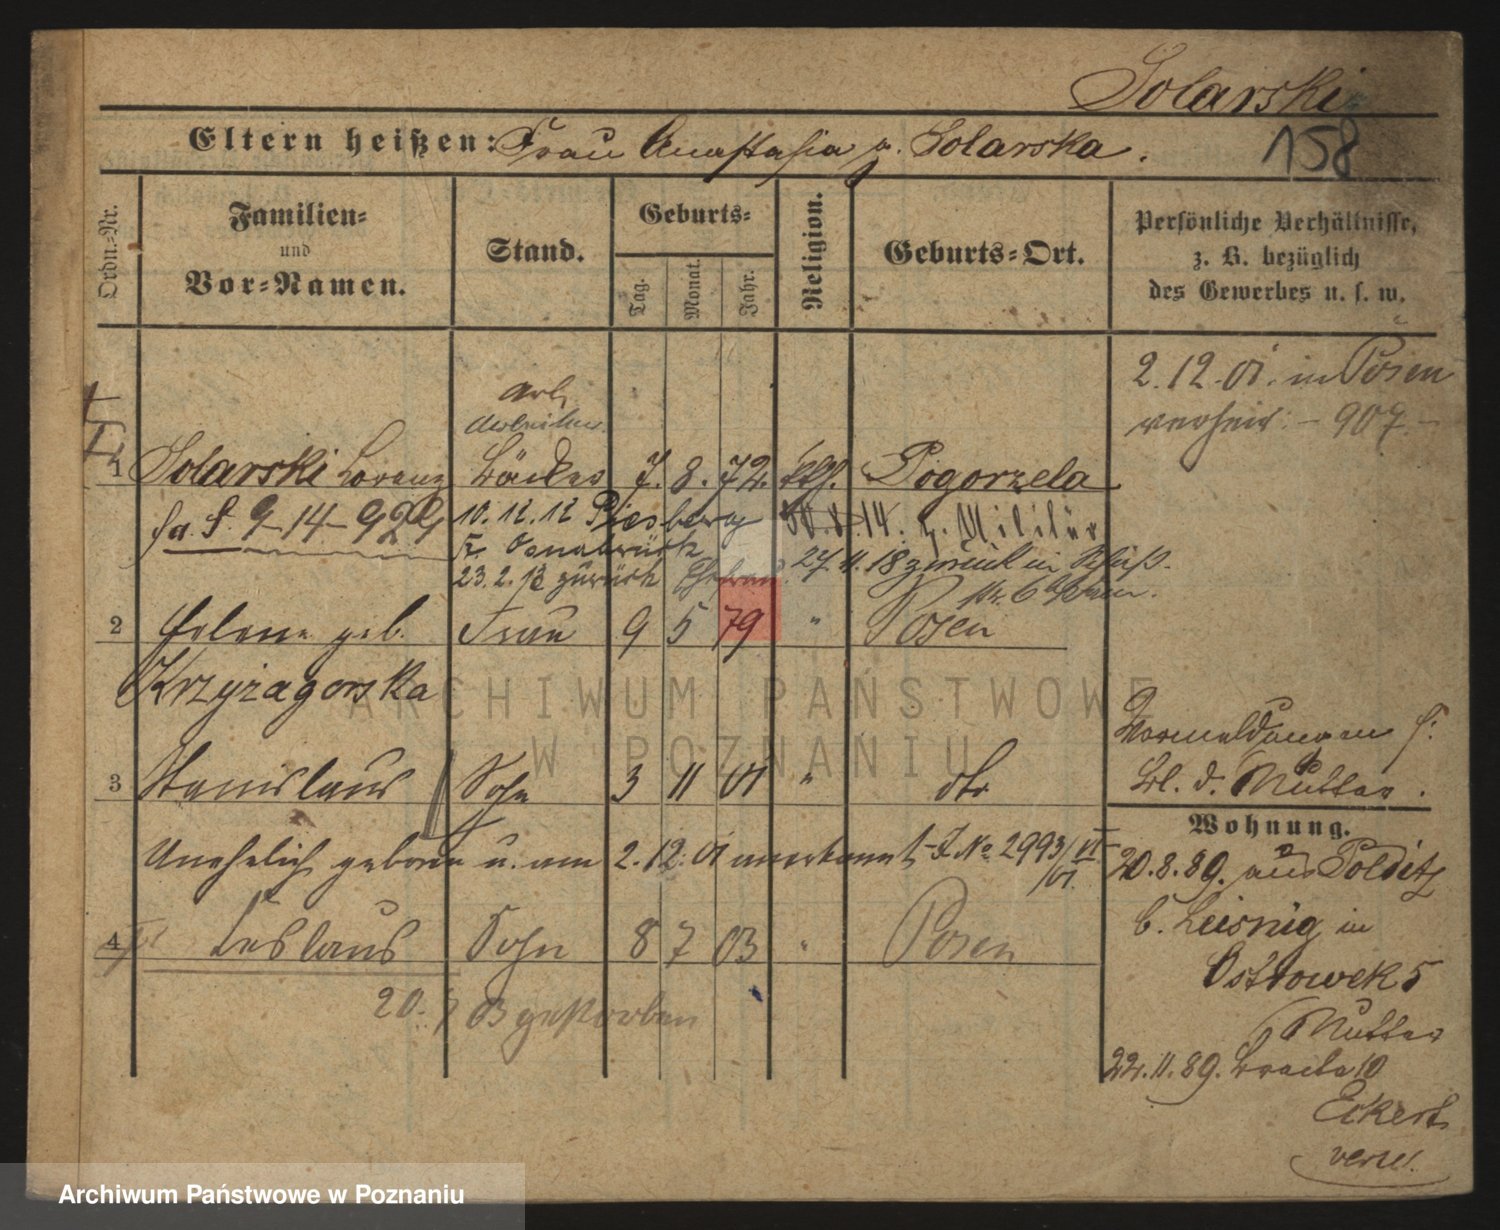 Solarski
158
Eltern heißen: Frau Anastasia g. Solarska.
Ordn.-Nr.
Familien- und Vor-Namen.
Stand.
Geburts-
Tag.
Monat.
Jahr.
Religion.
Geburts-Ort.
Persönliche Verhältnisse, z. B. bezüglich des Gewerbes u. s. w.
2.12.01. in Posen
verheir. - 907.-
Arb.
Arbeiter.
1 Solarski Lorenz Bäcker 7. 8. 72. kth. Pogorzela
9-14-929
10.12.12 Piesberg
b. Osnabrück
30.8.14. z. Militär
23.2.13 zurück Ehefrau. 27.11.18 zurück in
2 Helene geb. Frau 9 5 79 " Posen
Krzyżagorska
3 Stanislaus Sohn 3 11 01 " dto
Vormeldungen s.
Bl. d. Mutter.
Unehelich geboren u. am 2.12.01 anerkannt J. No 2993/VI 01.
4 Leslaus Sohn 8 7 03 " Posen
20. 7 03 gestorben
Wohnung.
20.8.89. aus Polditz
b. Leisnig in
Ostrowek 5
Mutter
22.11.89. Breite 10
Eckert
verzz.
ARCHIWUM PAŃSTWOWE
W POZNANIU
Archiwum Państwowe w Poznaniu